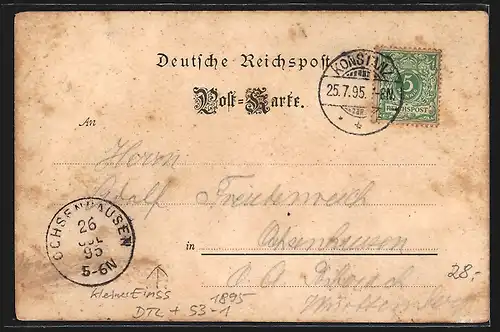 Deutsche Reichspost
Post-Karte.
KONSTANZ
25.7.95.
5
REICHSPOST
An
Herrn
Adolf Freudenreich
in Ochsenhausen
O. A. Biberach
Württemberg
OCHSENHAUSEN
26
JUL
95
5-6N
28.-
kleiner Einriss
1895
DTL + 53-1